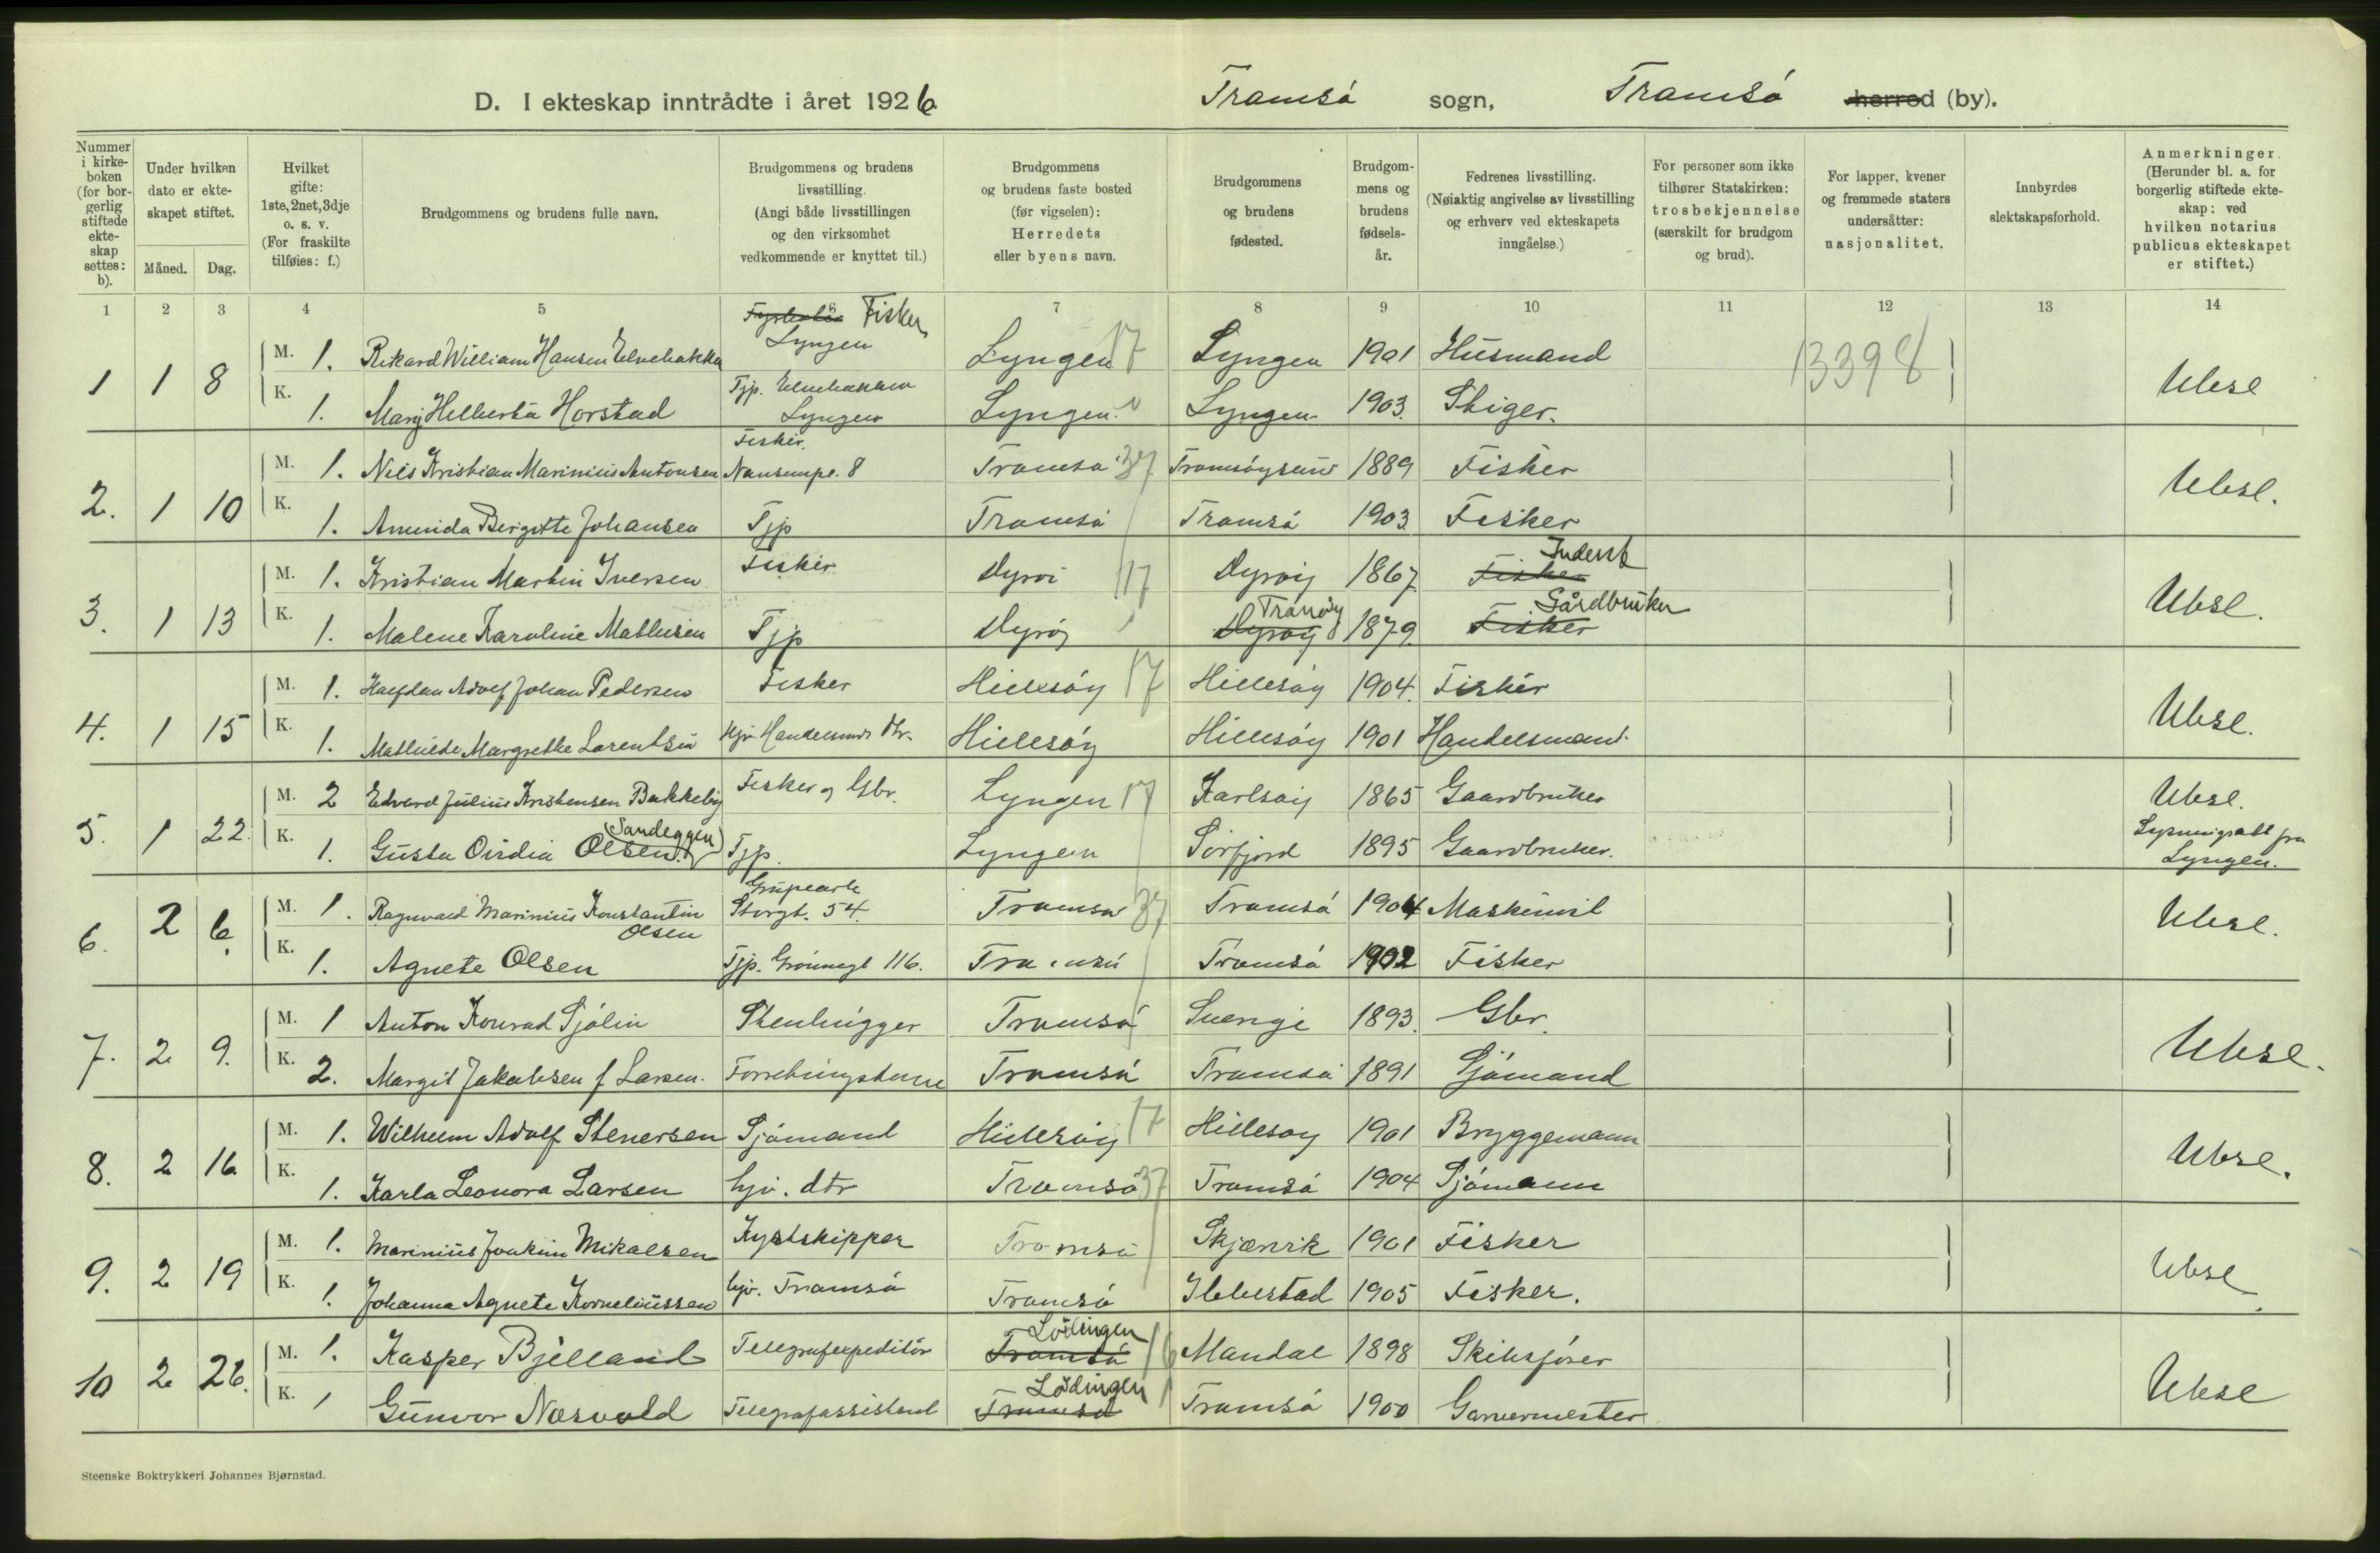 D. I ekteskap inntrådte i året 1926 Tromsö sogn, Tromsö herred (by).
Nummer i kirkeboken (for borgerlig stiftede ekteskap settes: b).
Under hvilken dato er ekteskapet stiftet.
Måned. Dag.
Hvilket gifte: 1ste, 2net, 3dje o. s. v. (For fraskilte tilføies: f.)
Brudgommens og brudens fulle navn.
Brudgommens og brudens livsstilling. (Angi både livsstillingen og den virksomhet vedkommende er knyttet til.)
Brudgommens og brudens faste bosted (før vigselen): Herredets eller byens navn.
Brudgommens og brudens fødested.
Brudgommens og brudens fødselsår.
Fedrenes livsstilling. (Nøiaktig angivelse av livsstilling og erhverv ved ekteskapets inngåelse.)
For personer som ikke tilhører Statskirken: trosbekjennelse (særskilt for brudgom og brud).
For lapper, kvener og fremmede staters undersåtter: nasjonalitet.
Innbyrdes slektskapsforhold.
Anmerkninger. (Herunder bl. a. for borgerlig stiftede ekteskap: ved hvilken notarius publicus ekteskapet er stiftet.)
1 2 3 4 5 6 7 8 9 10 11 12 13 14
Fisker
1 1 8 M. 1. Rikard William Hansen Elvebakken Lyngen Lyngen 17 Lyngen 1901 Husmand 13398 Ubsl
K. 1. Marg Helberta Horstad Tjp. Elvebakken Lyngen Lyngen Lyngen 1903. Stiger.
2. 1 10 M. 1. Nils Kristian Marinius Antonsen Fisker Nansenspl. 8 Tromsö 37 Tromsöysund 1889 Fisker Ubsl.
K. 1. Amanda Bergitte Johansen Tjp Tromsö Tromsö 1903 Fisker
3. 1 13 M. 1. Kristian Martin Iversen Fisker Dyröi 17 Dyröig 1867 Fisker Inderst Ubsl.
K. 1. Malene Karoline Mathisen Tjp Dyröy Dyröy Tranöy 1879 Fisker Gårdbruker
4. 1 15 M. 1. Halfdan Adolf Johan Pedersen Fisker Hillesöy 17 Hillesöy 1904. Fisker Ubsl.
K. 1. Mathilde Margrethe Lorentsen Hjv. Handelsmds dtr. Hillesöy Hillesöy 1901 Handelsmand.
5. 1 22. M. 2 Edvard Julius Kristensen Bakkeby Fisker og Gbr. Lyngen 17 Karlsöy 1865 Gaardbruker Ubsl.
K. 1. Gusta Ovidia Olsen (Sandeggen) Tjp. Lyngen Sörfjord 1895 Gaardbruker. Lysningsatt fra Lyngen.
6. 2 6. M. 1. Ragnvald Marinius Konstantin Olsen Grupearb Storgt. 54. Tromsö 37 Tromsö 1904 Maskinist Ubsl.
K. 1. Agnete Olsen Tjp. Grönnegt 116. Tromsö Tromsö 1902 Fisker
7. 2 9. M. 1 Anton Konrad Sjölin Stenhugger Tromsö Sverige 1893. Gbr. Ubsl.
K. 2. Margit Jakobsen f Larsen. Forretningsdame Tromsö Tromsö 1891 Sjömand
8. 2 16 M. 1. Wilhelm Adolf Stenersen Sjömand Hillesöy 17 Hillesöy 1901 Bryggemann Ubsl.
K. 1. Karla Leonora Larsen hjv. dtr Tromsö 37 Tromsö 1904 Sjömann
9. 2 19 M. 1. Marinius Joakim Mikalsen Kystskipper Tromsö Skjærvik 1901 Fisker Ubsl.
K. 1. Johanna Agnete Korneliussen hjv. Tromsö Tromsö Ibbestad 1905 Fisker.
10 2 26. M. 1. Kasper Bjelland Telegrafexpeditör Tromsö Lödingen 16 Mandal 1898 Skibsförer Ubsl
K. 1 Gunvor Næsvold Telegrafassistent Tromsö Lödingen Tromsö 1900 Garvermester
Steenske Boktrykkeri Johannes Bjørnstad.